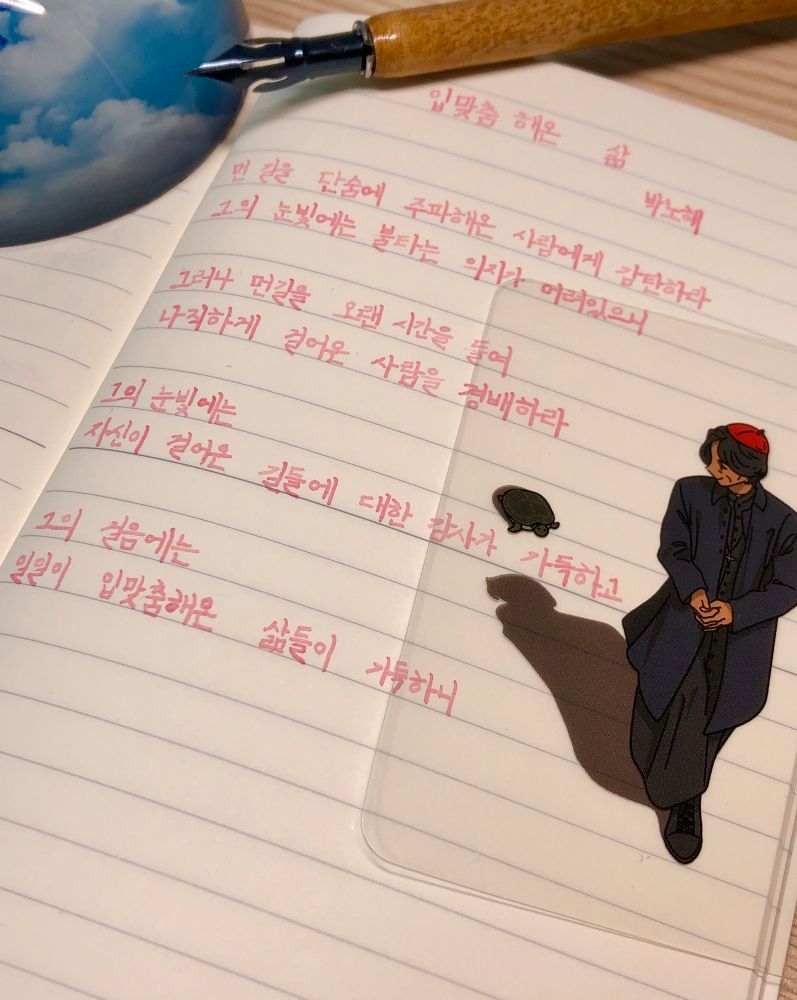 입맞춤 해온 삶
박노해
먼 길을 단숨에 주파해온 사람에게 감탄하라
그의 눈빛에는 불타는 의지가 어려있으니
그러나 먼길을 오랜 시간을 들여
나직하게 걸어온 사람을 경배하라
그의 눈빛에는
자신이 걸어온 길들에 대한 감사가 가득하고
그의 걸음에는
일일이 입맞춤해온 삶들이 가득하니